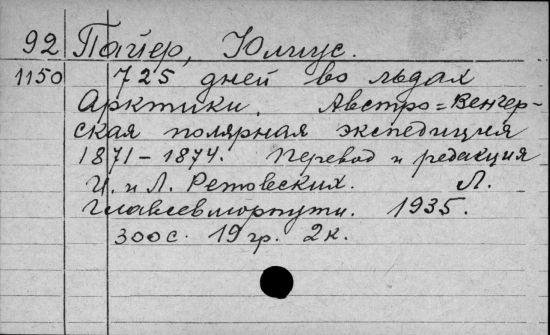 92 Пайер, Юлиус.
1150 725 дней во льдах
Арктики. Австро=Венгер-
ская полярная экспедиция
1871-1874. Перевод и редакция
И. и Л. Ретовских. Л.
Главсевморпути. 1935.
300с. 19гр. 2к.